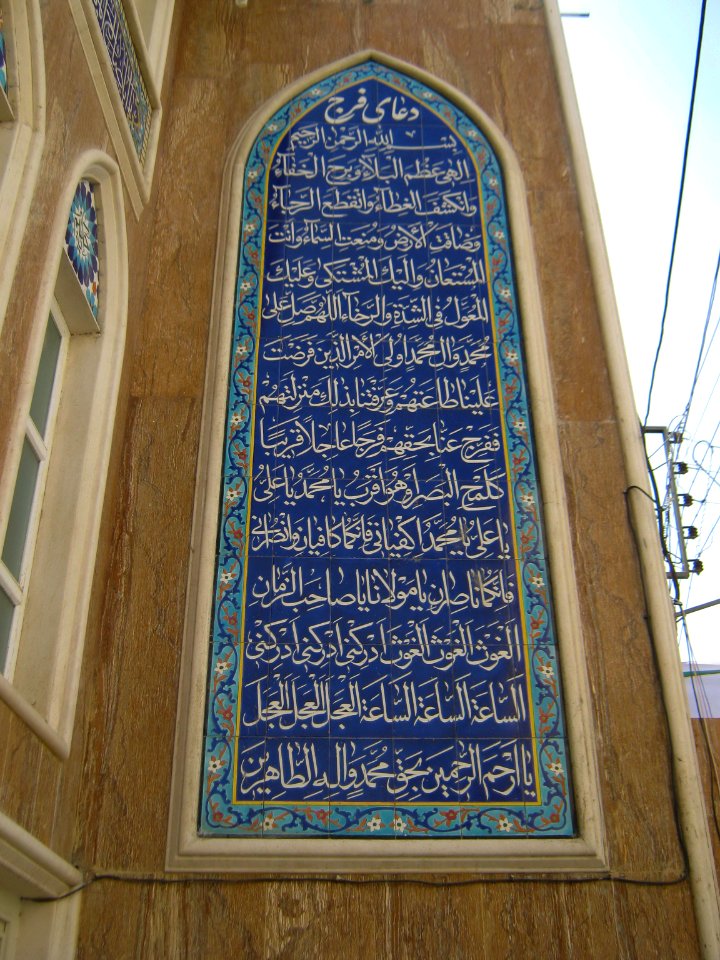 دعای فرج
بِسْمِ اللهِ الرَّحْمنِ الرَّحیمِ
اِلهی عَظُمَ الْبَلاَّءُ وَبَرِحَ الْخَفَاَّءُ
وَانْکَشَفَ الْغِطاَّءُ وَانْقَطَعَ الرَّجاَّءُ
وَضاقَتِ الْأَرْضُ وَمُنِعَتِ السَّماَّءُ وَاَنْتَ
الْمُسْتَعانُ وَاِلَیْکَ الْمُشْتَکی وَعَلَیْکَ
الْمُعَوَّلُ فِی الشِّدَّةِ وَالرَّخاَّءِ اَللّهُمَّ صَلِّ عَلی
مُحَمَّدٍ وَالِ مُحَمَّدٍ اُولِی الْاَمْرِ الَّذینَ فَرَضْتَ
عَلَیْنا طاعَتَهُمْ وَعَرَّفْتَنا بِذلِکَ مَنْزِلَتَهُمْ
فَفَرِّجْ عَنّا بِحَقِّهِمْ فَرَجاً عاجِلاً قَریباً
کَلَمْحِ الْبَصَرِ اَوْ هُوَ اَقْرَبُ یا مُحَمَّدُ یا عَلِیُّ
یا عَلِیُّ یا مُحَمَّدُ اِکْفِیانی فَاِنَّکُما کافِیانِ وَانْصُرانی
فَاِنَّکُما ناصِرانِ یا مَوْلانا یا صاحِبَ الزَّمانِ
الْغَوْثَ الْغَوْثَ الْغَوْثَ اَدْرِکْنی اَدْرِکْنی اَدْرِکْنی
السّاعَةَ السّاعَةَ السّاعَةَ الْعَجَلَ الْعَجَلَ الْعَجَلَ
یا اَرْحَمَ الرّاحِمینَ بِحَقِّ مُحَمَّدٍ وَالِهِ الطّاهِرینَ